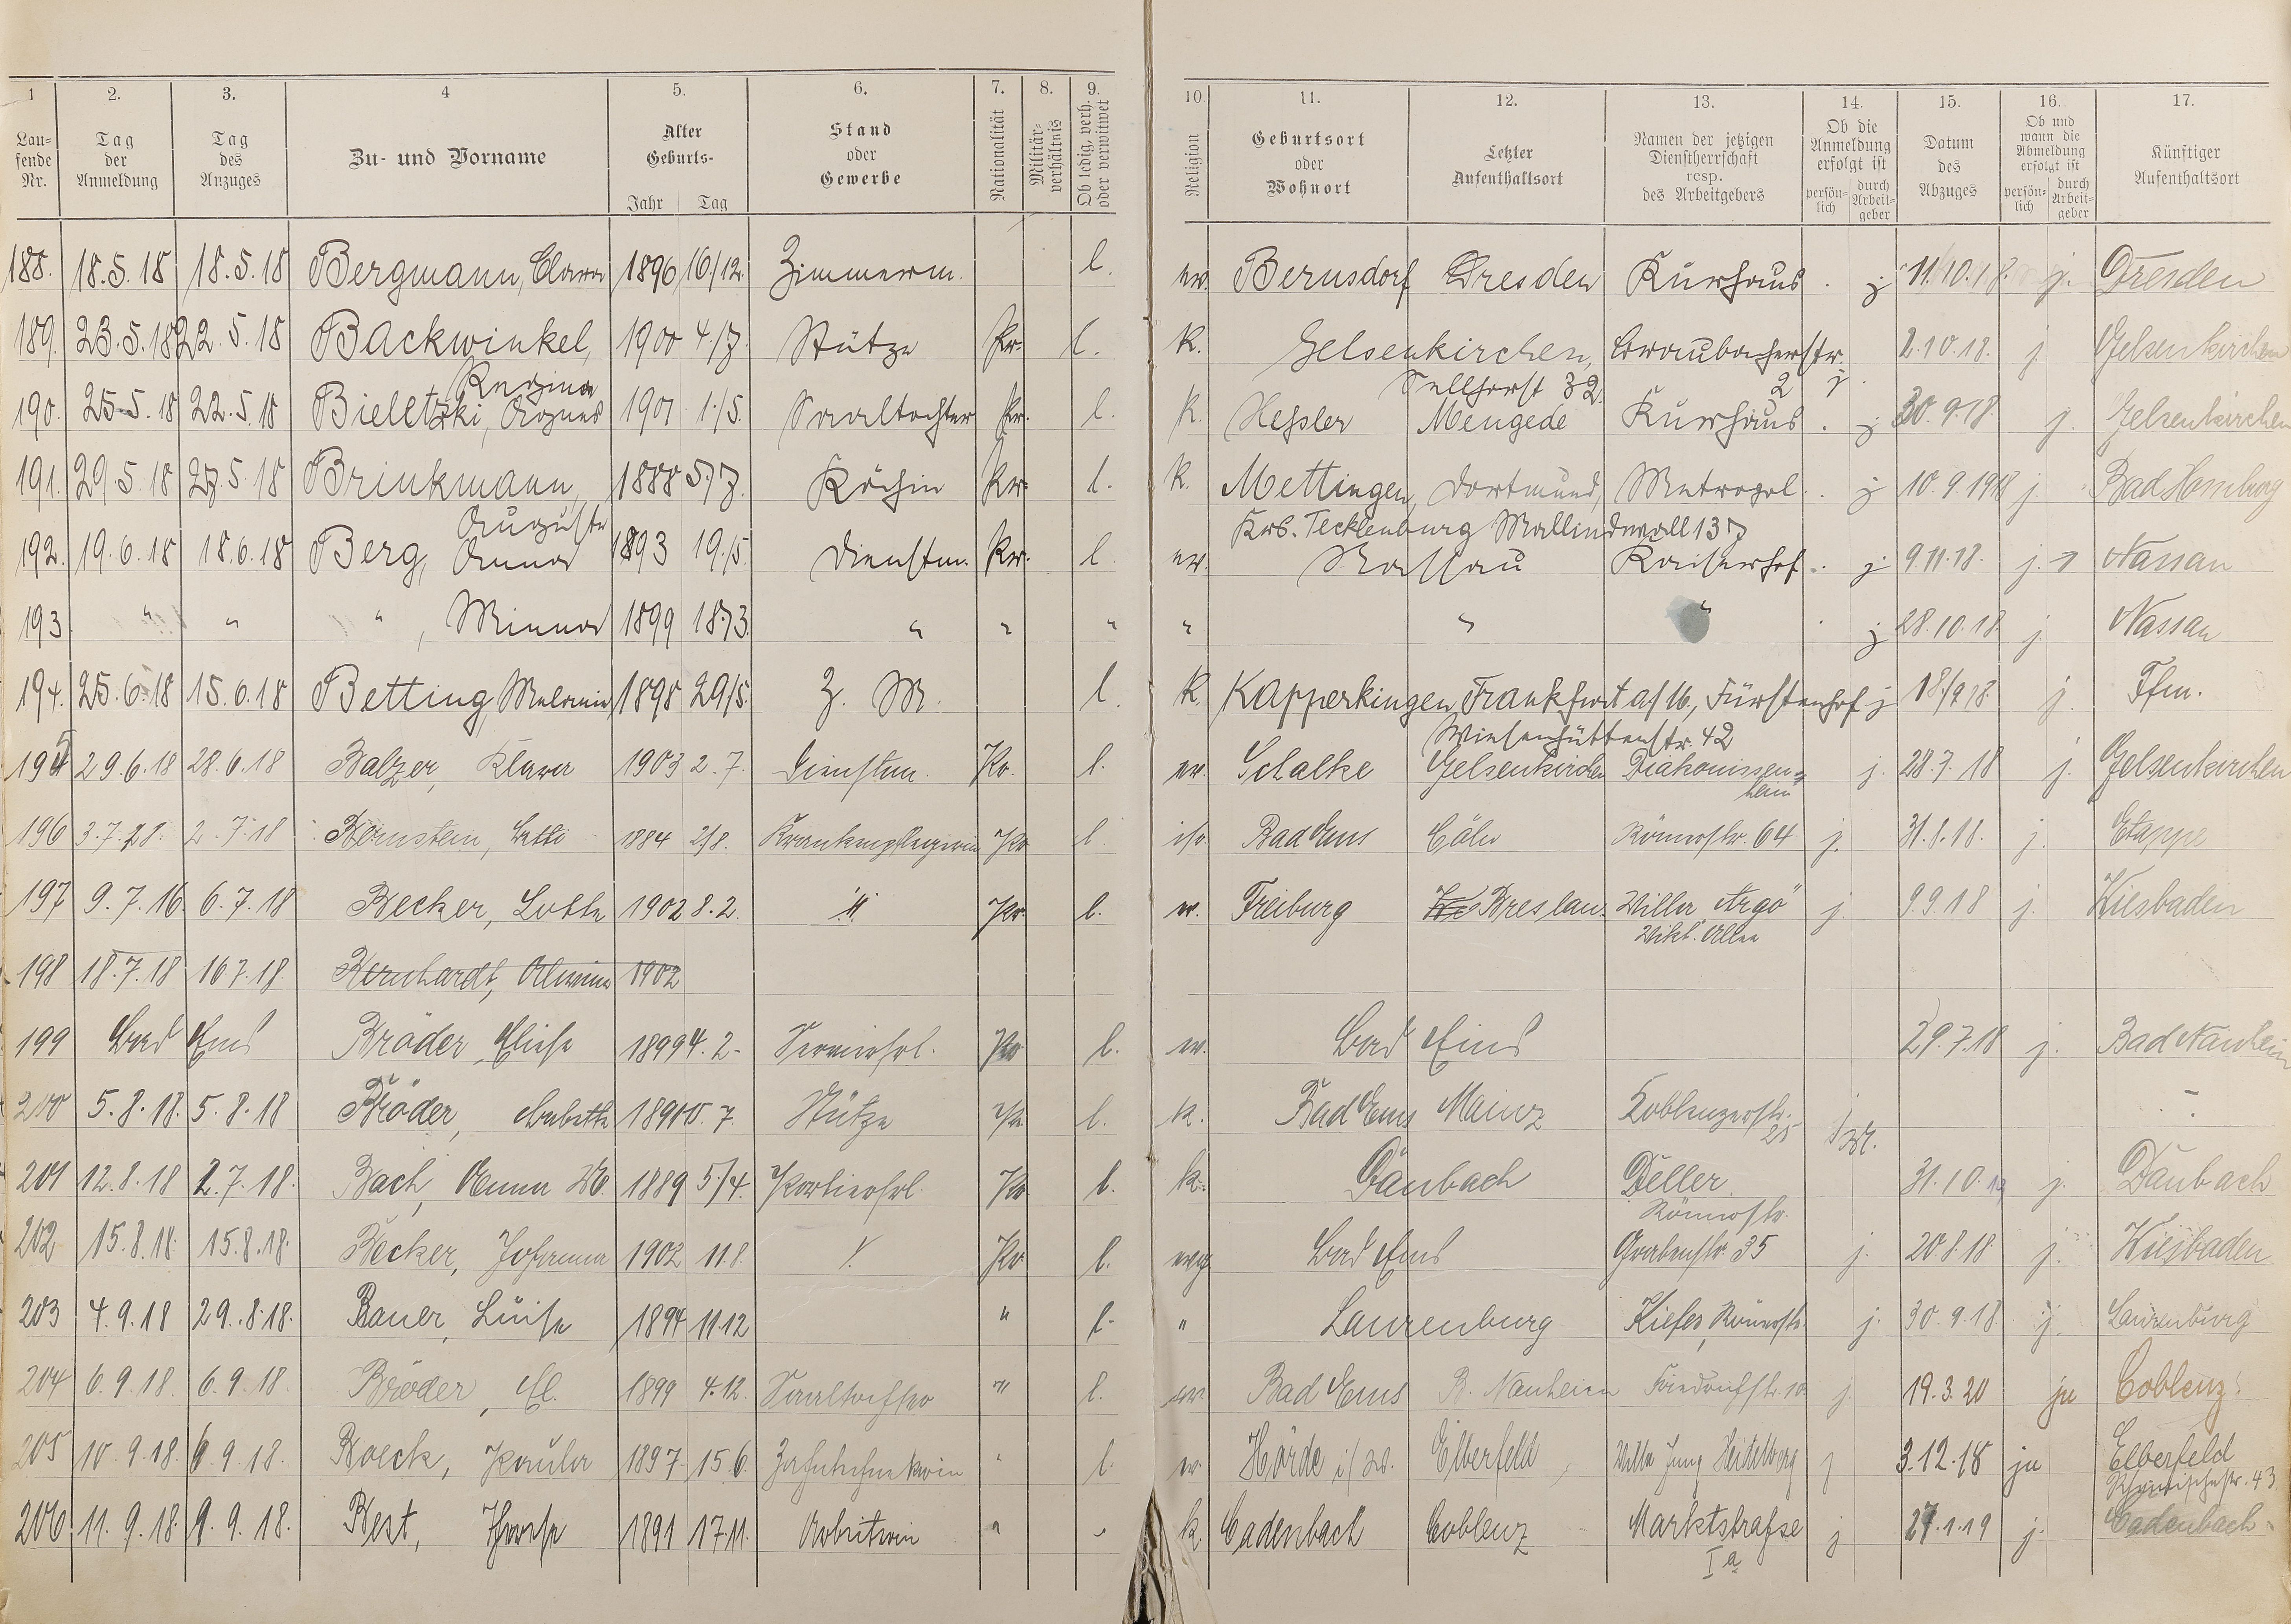 1 2. 3. 4 5. 6. 7. 8. 9. 10. 11. 12. 13. 14. 15. 16. 17.
Laufende Nr. Tag der Anmeldung Tag des Anzuges Zu- und Vorname Alter Geburts- Jahr Tag Stand oder Gewerbe Nationalität Militärverhältnis Ob ledig, verh. oder verwitwet Religion Geburtsort oder Wohnort Letzter Aufenthaltsort Namen der jetzigen Dienstherrschaft resp. des Arbeitgebers Ob die Anmeldung erfolgt ist persönlich durch Arbeitgeber Datum des Abzuges Ob und wann die Abmeldung erfolgt ist persönlich durch Arbeitgeber Künftiger Aufenthaltsort
188. 18.5.18 18.5.18 Bergmann, Clara 1896 16/12. Zimmerm. l. ev. Bernsdorf Dresden Kurhaus. j 11.10.18. j. Dresden
189. 23.5.18 22.5.18 Backwinkel, 1900 4./7. Stütze Pr. l. K. Gelsenkirchen, Braubacherstr. 2.10.18. j. Gelsenkirchen
Regina Sellhorst 32. 2 j.
190. 25.5.18 22.5.18 Bieletzki, Agnes 1901 1./5. Saaltochter Pr. l. K. Hessler Mengede Kurhaus. j 30.9.18. j. Gelsenkirchen
191. 29.5.18 27.5.18 Brinkmann, 1888 5./7. Köchin Pr. l. K. Mettingen, Dortmund, Metropol. j 10.9.1918 j. Bad Homburg
Auguste Krs. Tecklenburg 137
192. 19.6.18 18.6.18 Berg, Anna 1893 19./5. Dienstm. Pr. l. ev. Nassau Kaiserhof. j. 9.11.18. j. Nassau
193 " " ", Minna 1899 18./3. " " " " " " j 28.10.18. j. Nassau
194. 25.6.18 15.6.18 Betting, 1898 29/5. Z. M. l. K. Kapperkingen, Frankfurt a/M., Fürstenhof j 18./9 18. j. Ffm.
Wiesenhüttenstr. 42
195 29.6.18 28.6.18 Balzer, Klara 1903 2.7. Dienstm. Pr. l. ev. Schalke Gelsenkirchen Diakonissen= j. 28.7.18 j. Gelsenkirchen
heim
196 3.7.18. 2.7.18 Bernstein, Betti 1884 2/8. Krankenpflegerin Pr l. isr. Bad Ems Cöln Römerstr. 64 j. 31.8.18. j. Etappe
197 9.7.16 6.7.18 Becker, Lotte 1902 8.2. " Pr. l. ev. Freiburg Breslau. Villa Argo" j. 9.9.18 j. Wiesbaden
Vikt. Allee
198 18.7.18 16.7.18. Bernhardt, 1902
199 Bad Ems Bröder, Elise 1899 4.2. Servierfrl. Pr l. ev. Bad Ems 29.7.18 j. Bad Nauheim
200 5.8.18. 5.8.18 Bröder, Babette 15.7. Stütze Pr. l. k. Bad Ems Mainz Koblenzerstr. -
25
201 12.8.18 2.7.18. Bach, Anna 1889 5./4. Pr l. k. Daubach Deller. 31.10.18 j. Daubach
Römerstr.
202 15.8.18. 15.8.18. Becker, Johanna 1902 11.8. Pr l. evg. Bad Ems Grabenstr. 35 j. 20.8.18. j. Wiesbaden
203 4.9.18 29.8.18. Bauer, Luise 1894 11.12 " l. " Laurenburg Kiefer, Römerstr. j. 30.9.18. j. Laurenburg
204 6.9.18. 6.9.18. Bröder, El. 1899 4.12. Saaltochter " l. ev Bad Ems B. Nauheim Friedrichstr. 10 j. 19.3.20 ja Coblenz
205 10.9.18. 6.9.18. Boeck, Paula 1897. 15.6. " l. ev. Hörde i/W. Elberfeld, Villa Jung Heidelberg j 3.12.18 ja Elberfeld
43.
206 11.9.18. 9.9.18. Best, Therese 1891 17.11. Arbeiterin " " k. Cadenbach Coblenz Marktstraße j 27.1.19 j. Cadenbach
I a